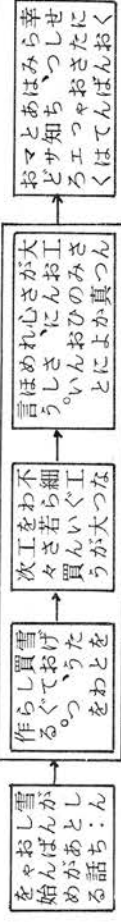 雪がしん
しんと：
おばあち
ゃんが話
を始める
雪げたを
買おうと
して、わ
らぐつを
作る。
不細工な
わらぐつ
を若い大
工さんが
次々買う
大工さん
がおみつ
さんの真
心にひか
れ、およ
めさんに
ほしいと
言う。
幸せにく
らしたお
みつさん
は、おば
あちゃん
と知って
マサエは
おどろく